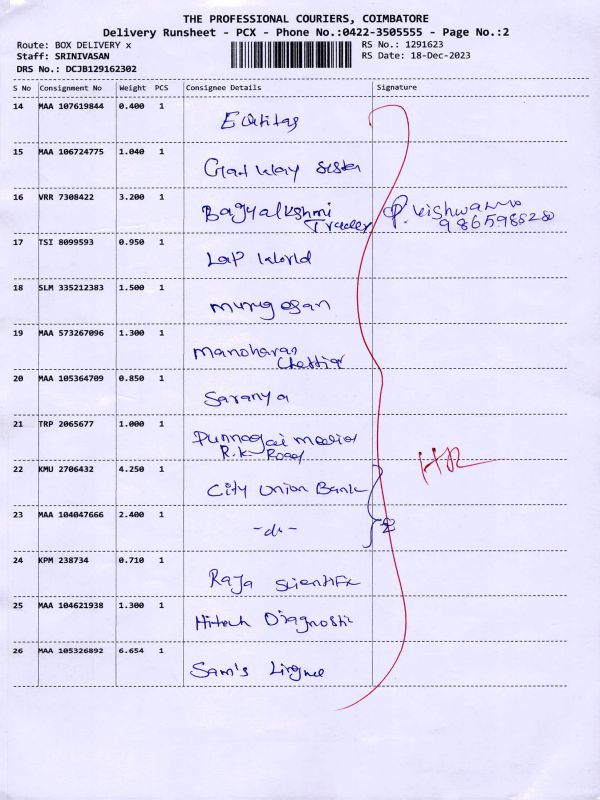 THE PROFESSIONAL COURIERS, COIMBATORE
Delivery Runsheet - PCX - Phone No.:0422-3505555 - Page No.:2
Route: BOX DELIVERY x RS No.: 1291623
Staff: SRINIVASAN RS Date: 18-Dec-2023
DRS No.: DCJB129162302
S No Consignment No Weight PCS Consignee Details Signature
14 MAA 107619844 0.400 1 Equitas
15 MAA 106724775 1.040 1
16 VRR 7308422 3.200 1 Bagyalkshmi P. Vishwa
Trader 9865988280
17 TSI 8099593 0.950 1 Lap World
18 SLM 335212383 1.500 1 Murugesan
19 MAA 573267096 1.300 1 Manoharan
Chettiar
20 MAA 105364709 0.850 1 Saranya
21 TRP 2065677 1.000 1 Punnagai
R.K Road
22 KMU 2706432 4.250 1 City Union Bank
23 MAA 104047666 2.400 1 -do- 2
24 KPM 238734 0.710 1 Raja
25 MAA 104621938 1.300 1 Hitech Diagnostic
26 MAA 105326892 6.654 1 Sam's